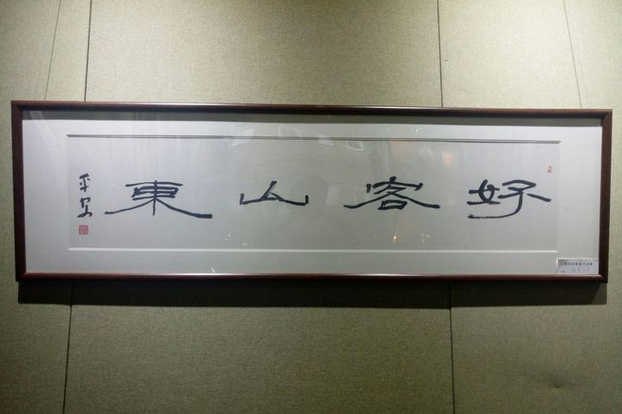 好客山東
平安